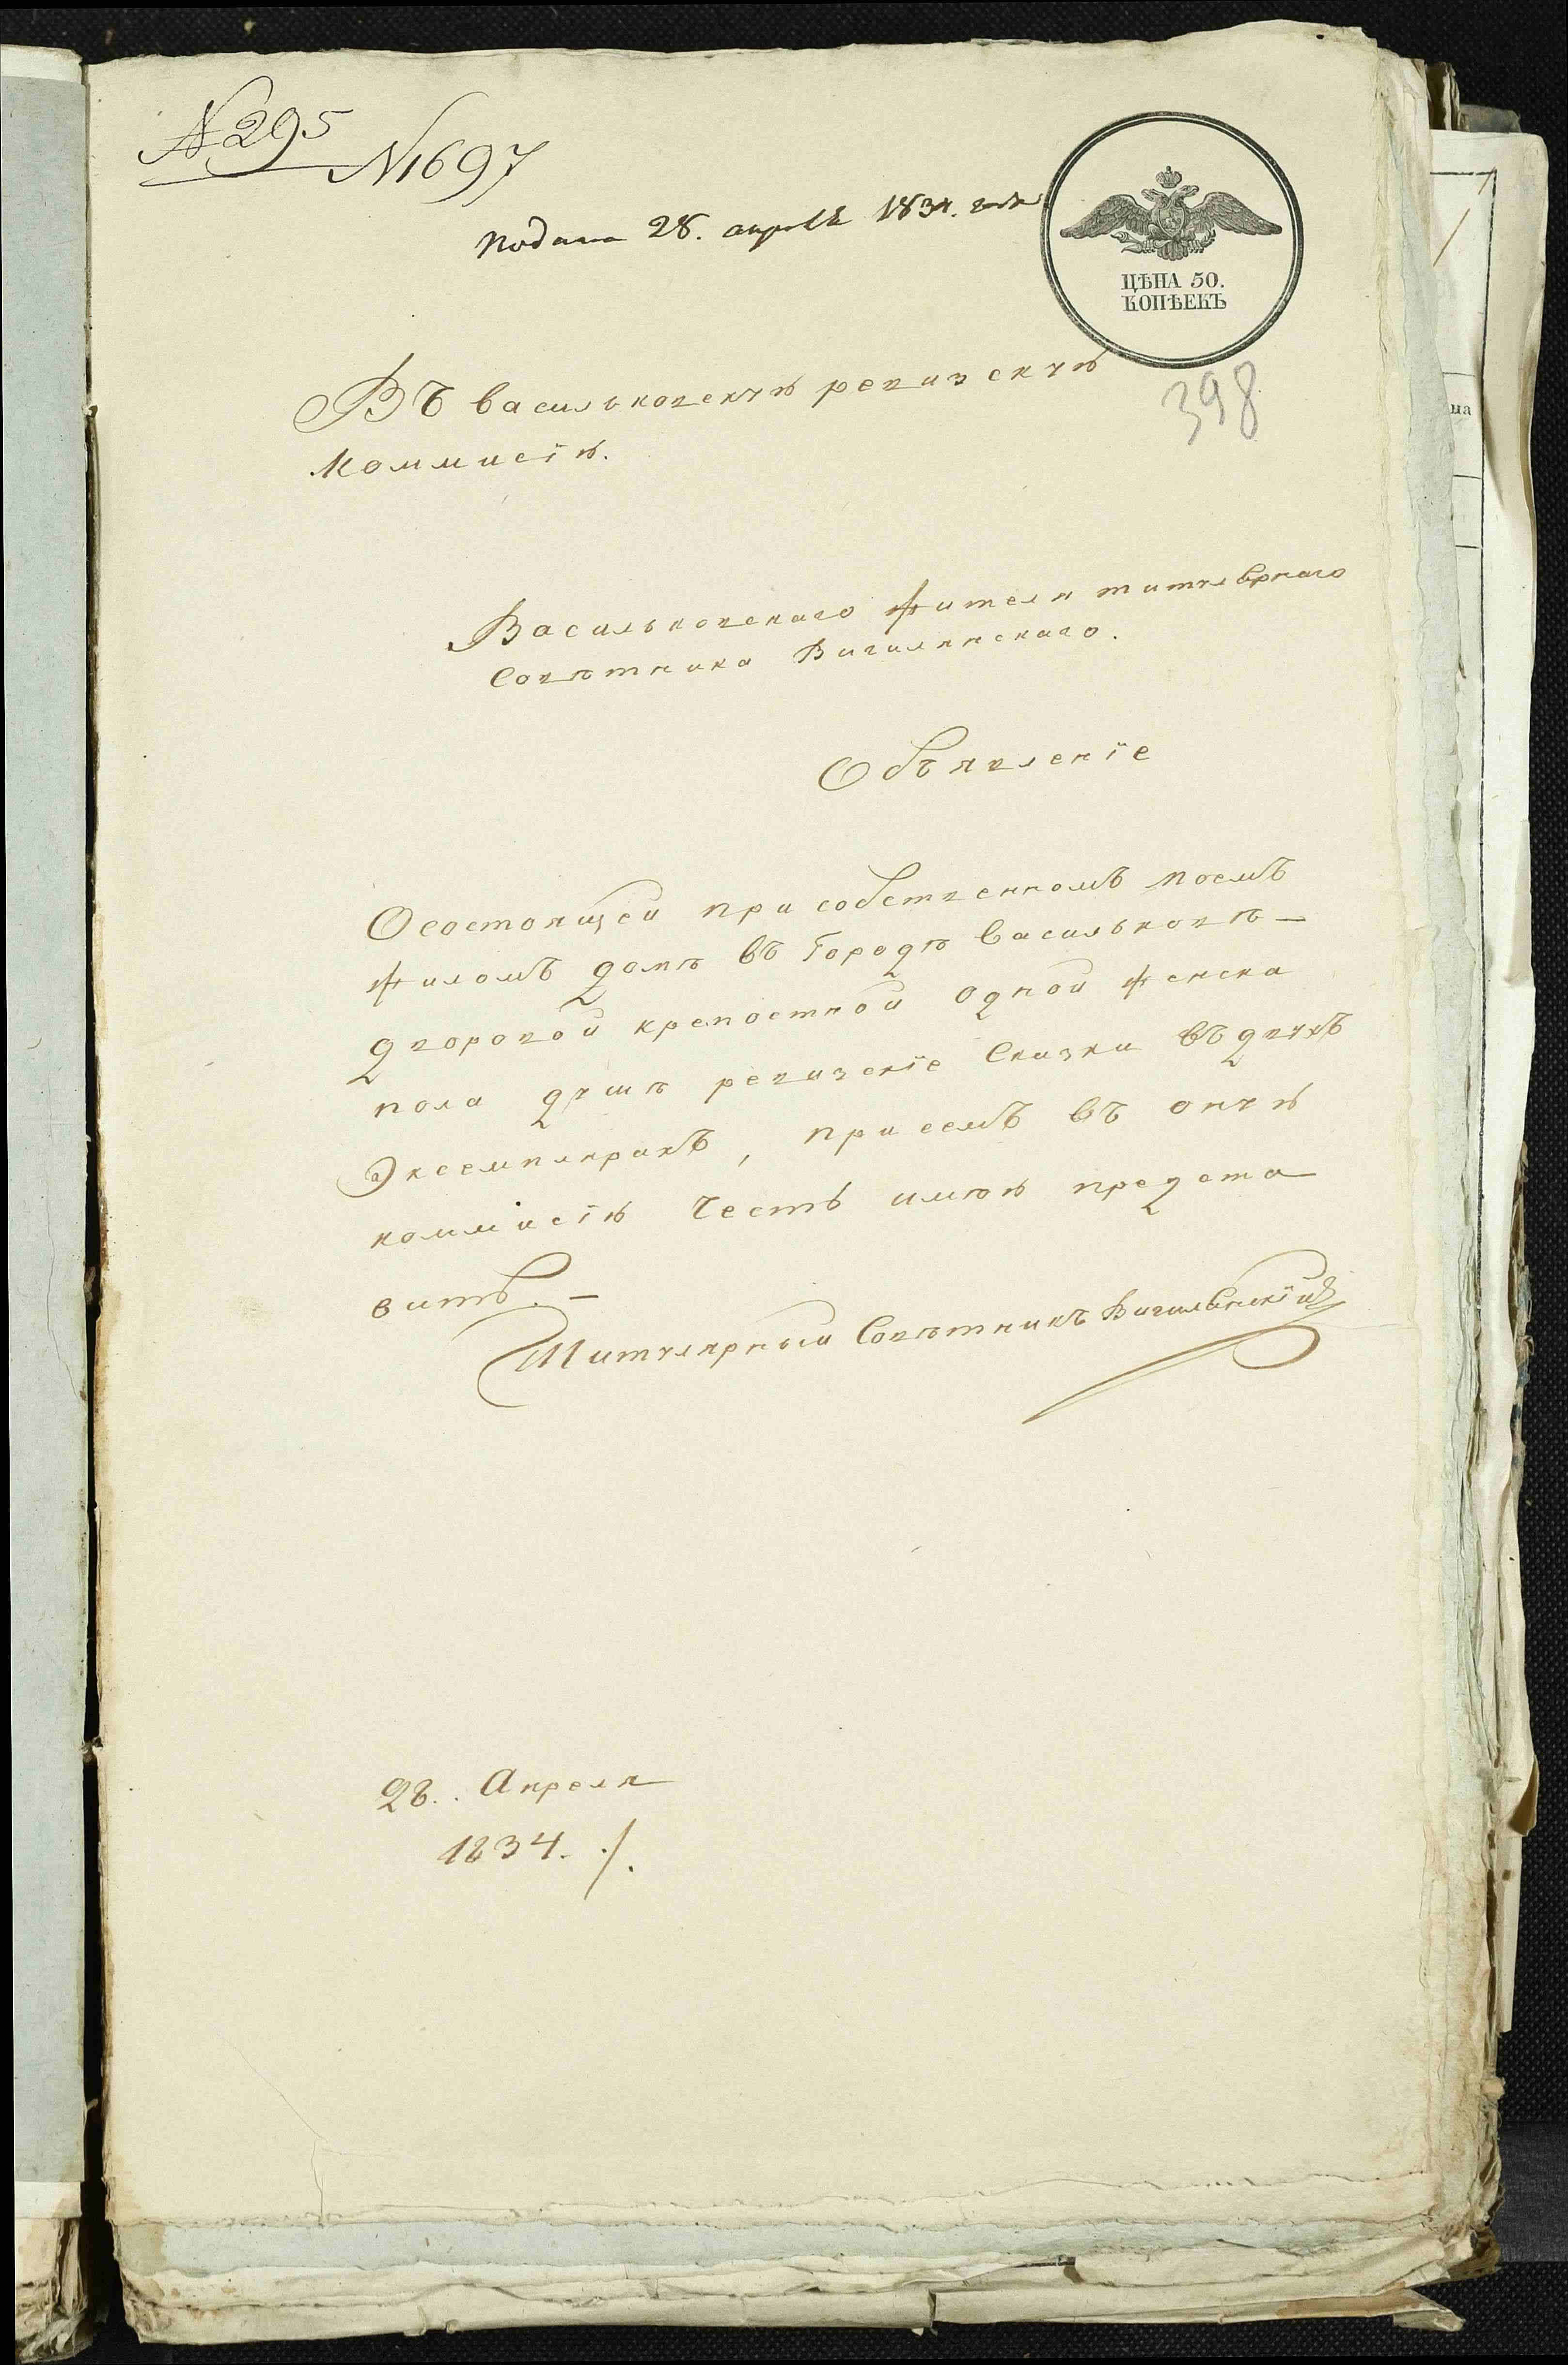 № 295
№ 1697
подана 28. апреля 1834. года
ЦѢНА 50.
КОПѢЕКЪ
398
Въ васильковскую ревизскую
Коммисію.
Васильковскаго жителя титулярнаго
Совѣтника Вигилянскаго.
Объявленіе
О состоящей при собственномъ моемъ
жиломъ домѣ въ Городѣ Васильковѣ —
дворовой крепостной одной женска
пола душѣ ревизскіе Сказки въ двухъ
Экземплярахъ, при семъ въ оную
коммисію Честь имѣю предста
вить. —
Титулярный Совѣтникъ Вигилянскій
28. Апреля
1834. ./.
на